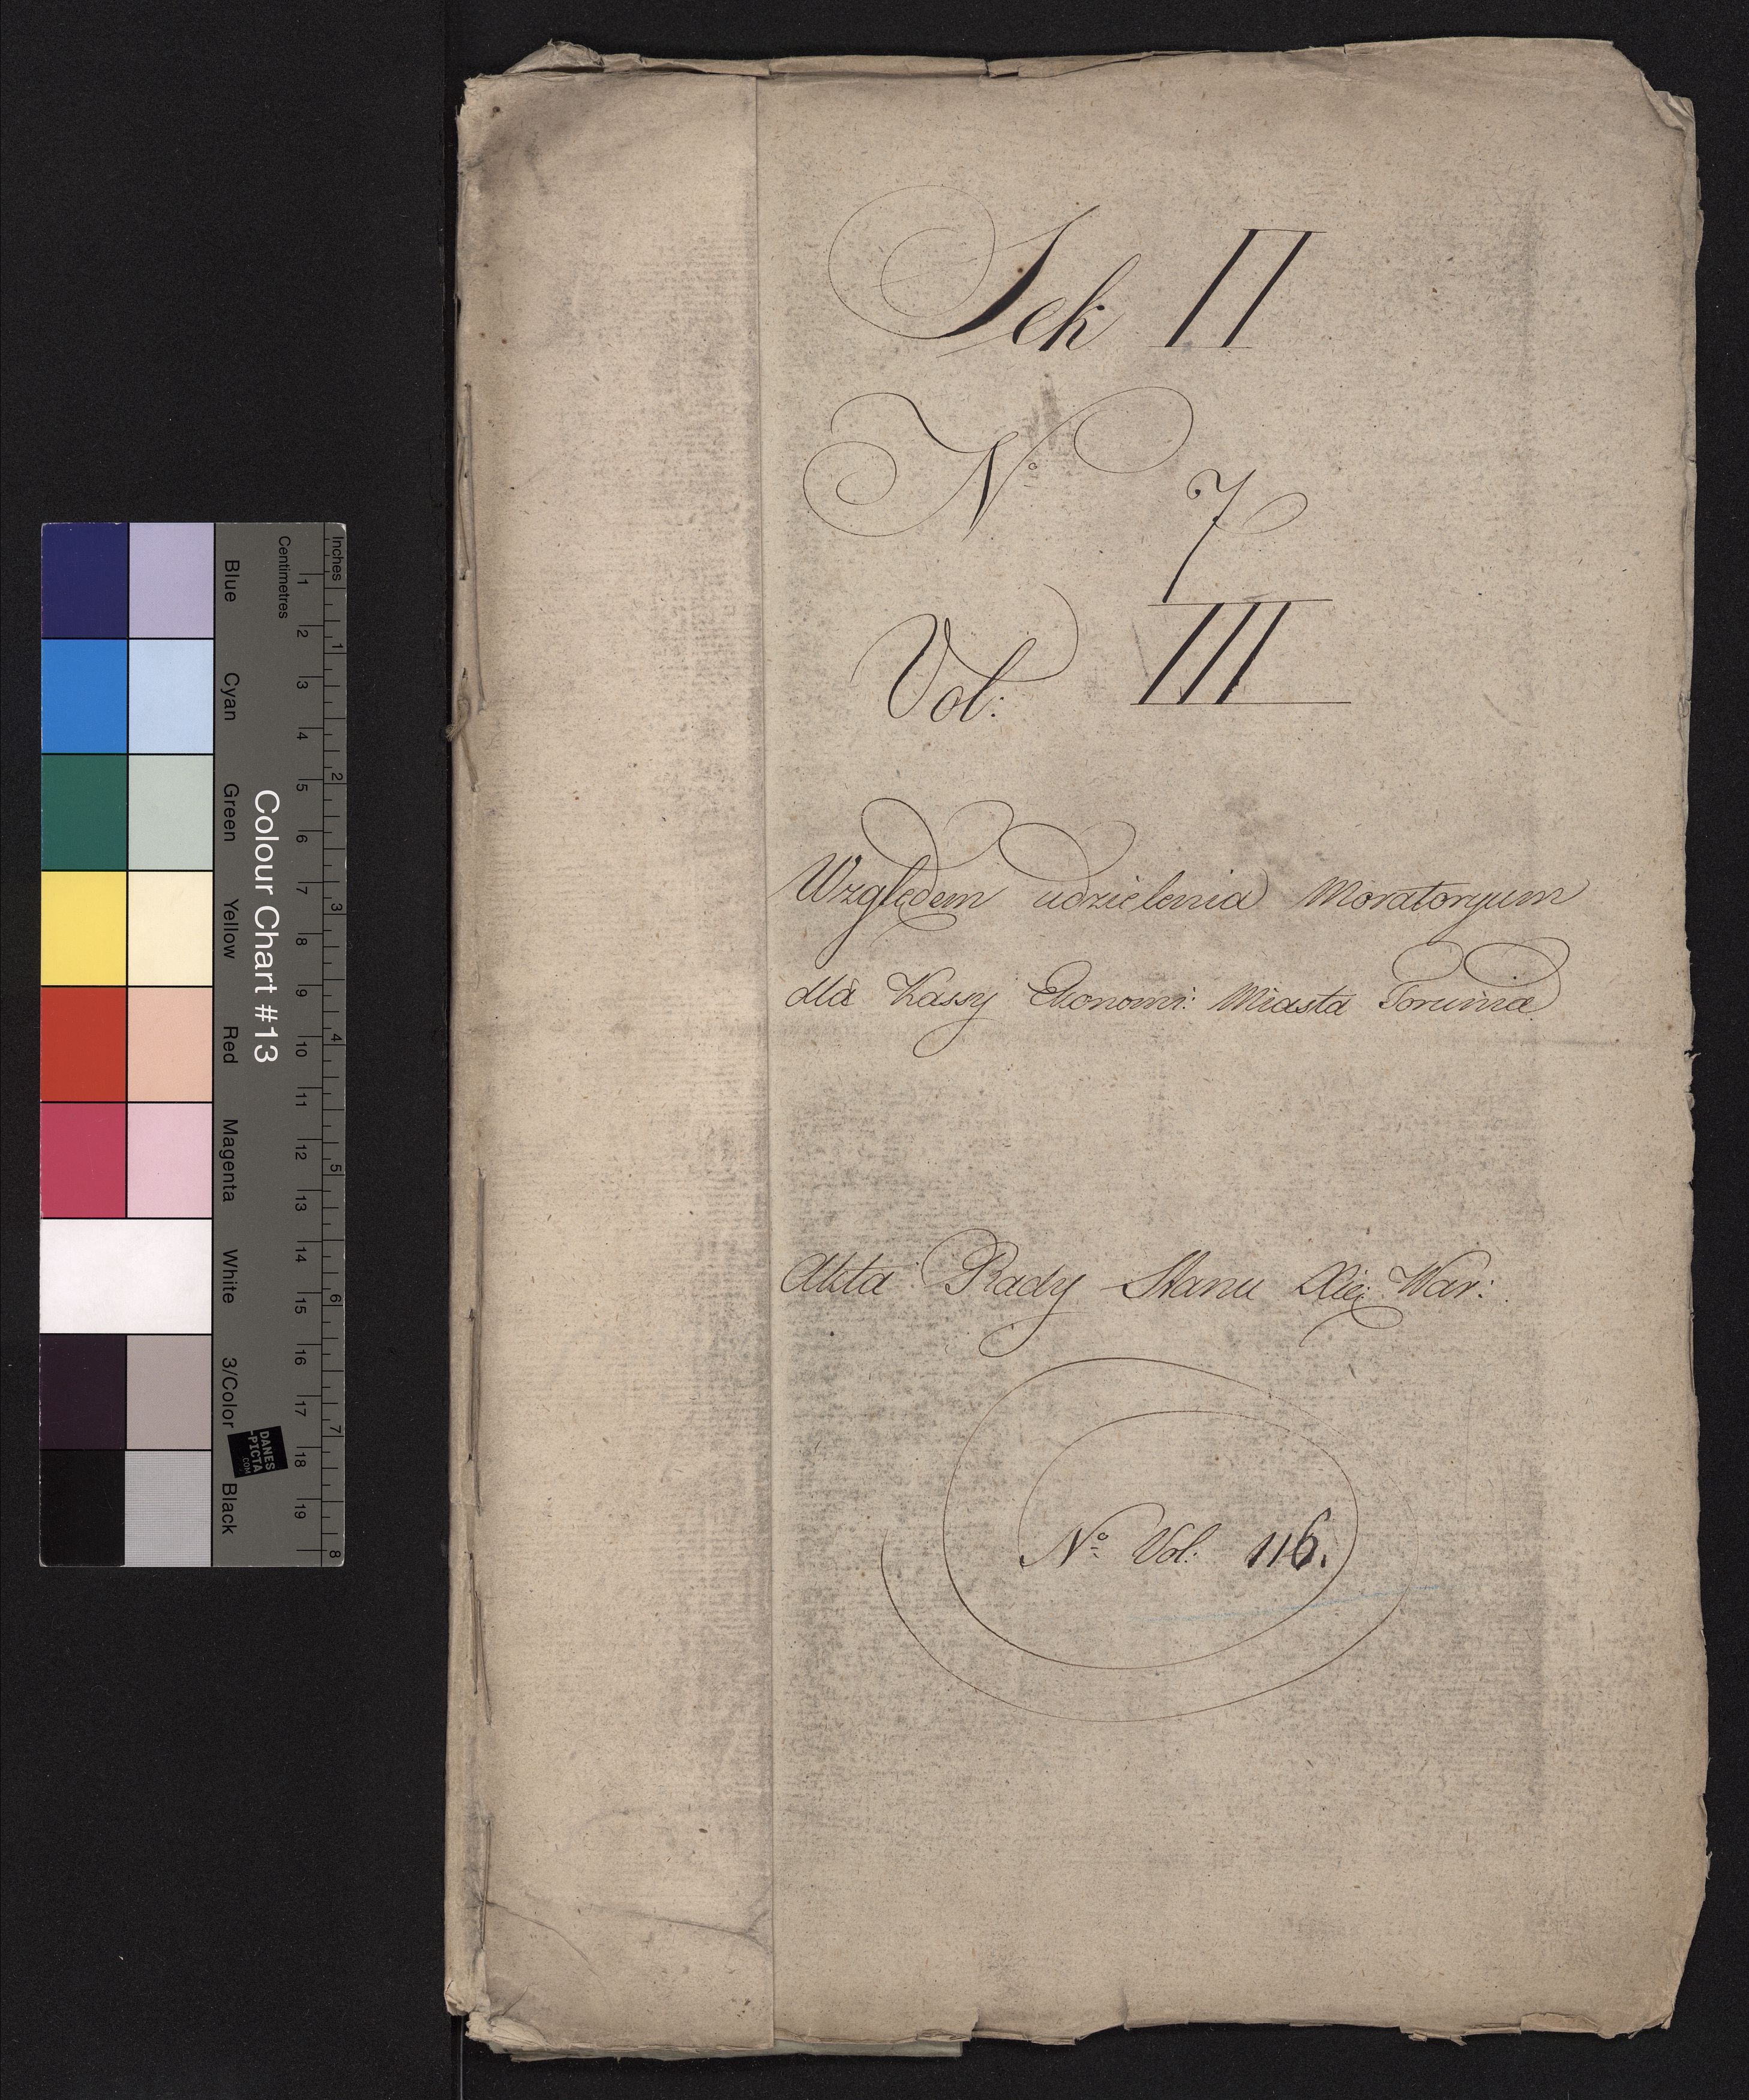 Sek II
No 7
Vol: III
Względem udzielenia Moratoryum
dla Kassy Ekonomi: Miasta Torunia
Akta Rady Stanu Xię: War:
No Vol: 116.
Inches
Centimetres
1 2 3 4 5 6 7 8 9 10 11 12 13 14 15 16 17 18 19
1 2 3 4 5 6 7 8
Colour Chart #13
Blue Cyan Green Yellow Red Magenta White 3/Color Black
DANES
-PICTA
.COM